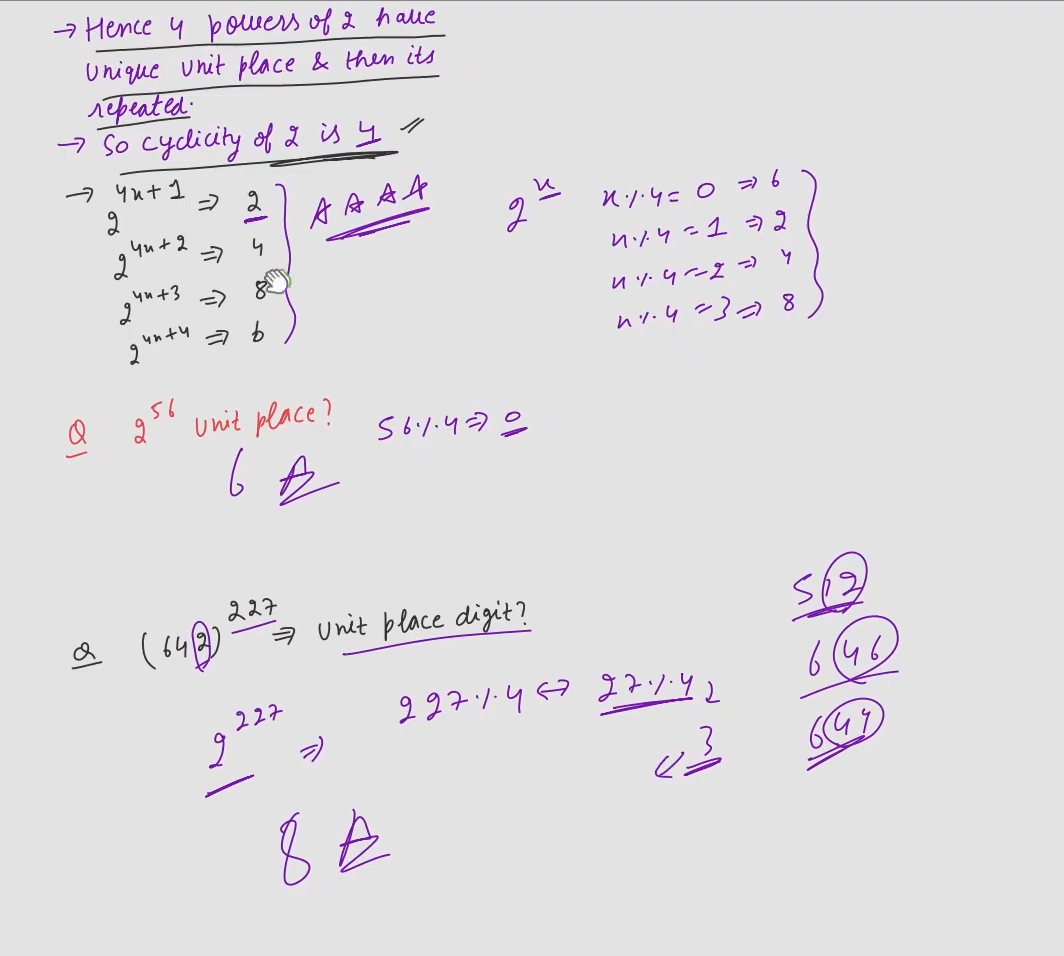 → Hence 4 powers of 2 have
unique unit place & then its
repeated.
→ So cyclicity of 2 is 4
→ 2^4n+1 ⇒ 2
2^4n+2 ⇒ 4
2^4n+3 ⇒ 8
2^4n+4 ⇒ 6
2^n n%4 = 0 ⇒ 6
n%4 = 1 ⇒ 2
n%4 = 2 ⇒ 4
n%4 = 3 ⇒ 8
Q 2^56 unit place? 56%4 ⇒ 0
6
Q (642)^227 ⇒ unit place digit?
2^227 ⇒ 227%4 ↔ 27%4
3
8
512
646
644